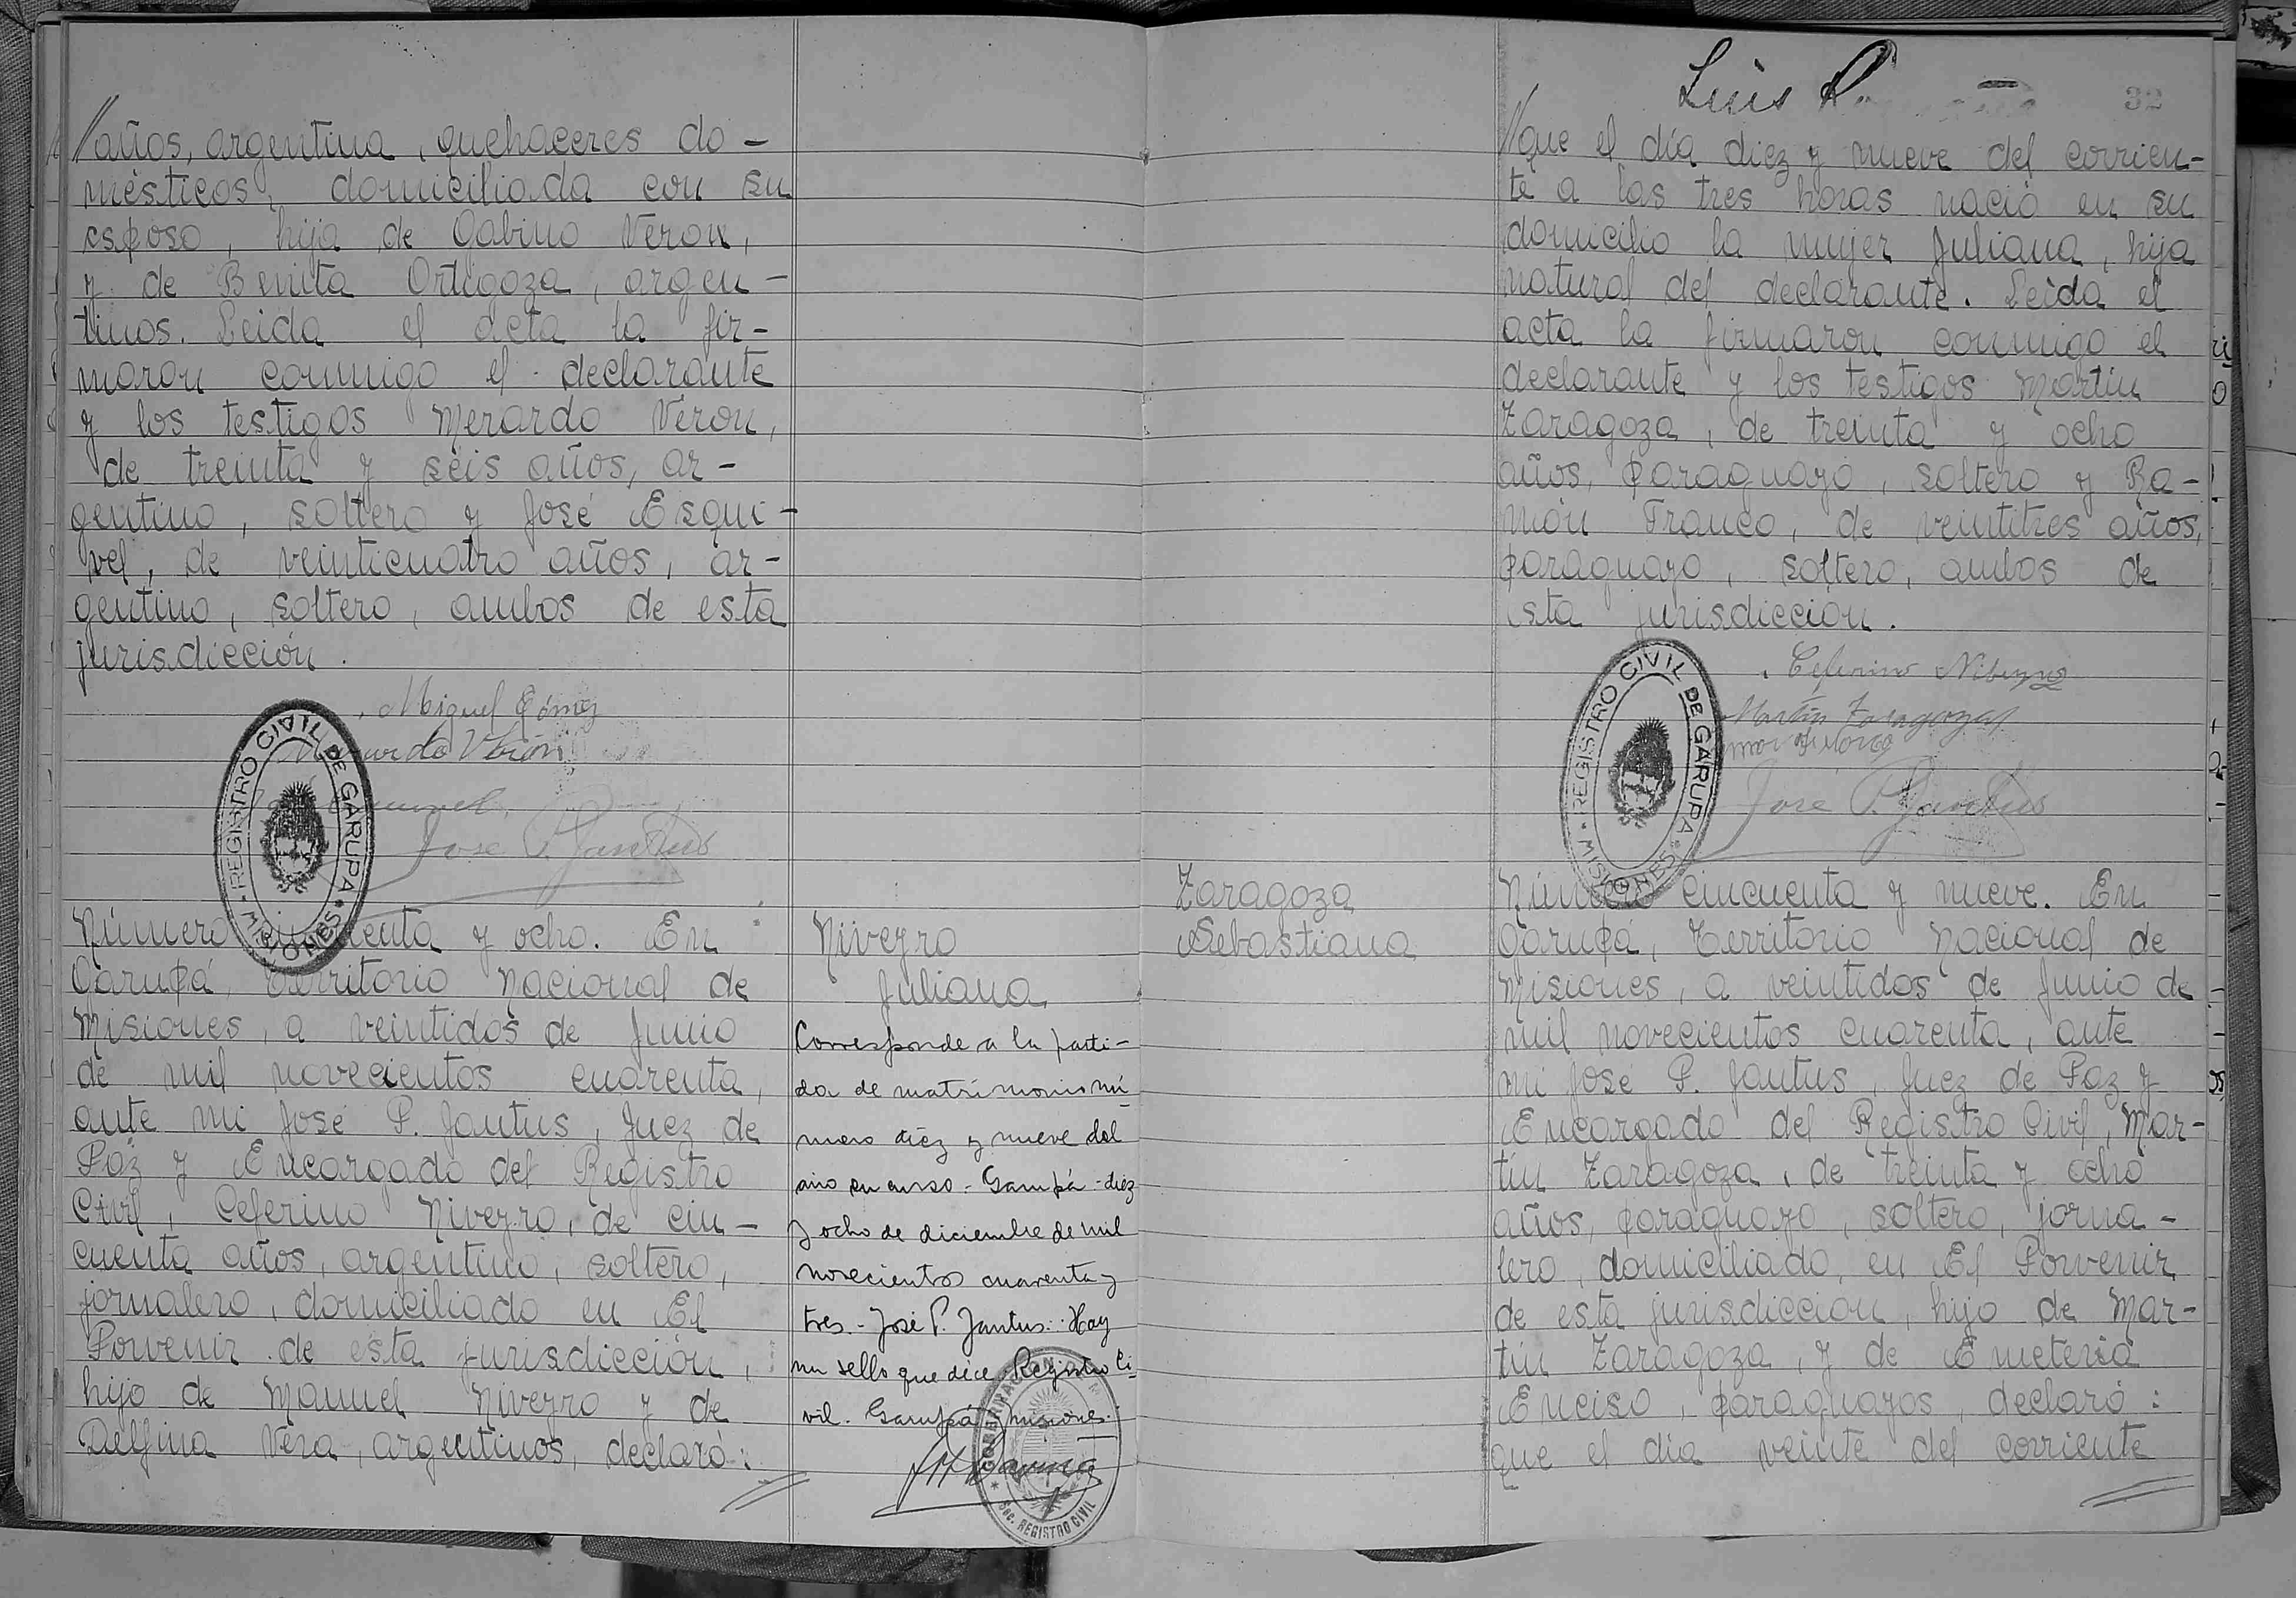 //años, argentina, quehaceres do-
mésticos, domiciliada con su
esposo, hija de Gabino Verón,
y de Benita Ortigoza, argen-
tinos. Leida el acta la fir-
maron conmigo el declarante
y los testigos Merardo Verón,
de treinta y seis años, ar-
gentino, soltero y José Esqui-
vel, de veinticuatro años, ar-
gentino, soltero, ambos de esta
jurisdicción.
Miguel Gómez
Verón
José P. Jantus
REGISTRO CIVIL DE GARUPA
MISIONES
Número cincuenta y ocho. En
Garupá, Territorio Nacional de
Misiones, a veintidos de Junio
de mil novecientos cuarenta,
ante mi José P. Jantus, Juez de
Paz y Encargado del Registro
Civil, Ceferino Niveyro, de cin-
cuenta años, argentino, soltero,
jornalero, domiciliado en El
Porvenir de esta jurisdicción,
hijo de Manuel Niveyro y de
Delfina Vera, argentinos, declaró:
//
Niveyro
Juliana
Corresponde a la parti-
da de matrimonio nú
mero diez y nueve del
año en curso - Garupá - diez
y ocho de diciembre de mil
novecientos cuarenta y
tres. - José P. Jantus. Hay
un sello que dice Registro Ci-
vil. Garupá Misiones.
SEC. REGISTRO CIVIL
Luis P.
32
//que el día diez y nueve del corrien-
te a las tres horas nació en su
domicilio la mujer Juliana, hija
natural del declarante. Leida el
acta la firmaron conmigo el
declarante y los testigos Martín
Zaragoza, de treinta y ocho
años, paraguayo, soltero y Ra-
món Franco, de veintitres años,
paraguayo, soltero, ambos de
esta jurisdicción.
Ceferino Niveyro
Martín Zaragoza
José P. Jantus
REGISTRO CIVIL DE GARUPA
MISIONES
Zaragoza
Sebastiana
Número cincuenta y nueve. En
Garupá, Territorio Nacional de
Misiones, a veintidos de Junio de
mil novecientos cuarenta, ante
mi José P. Jantus, Juez de Paz y
Encargado del Registro Civil, Mar-
tín Zaragoza, de treinta y ocho
años, paraguayo, soltero, jorna-
lero, domiciliado, en El Porvenir
de esta jurisdicción, hijo de Mar-
tín Zaragoza, y de Emeteria
Enciso paraguayos, declaró:
que el día veinte del corriente
//